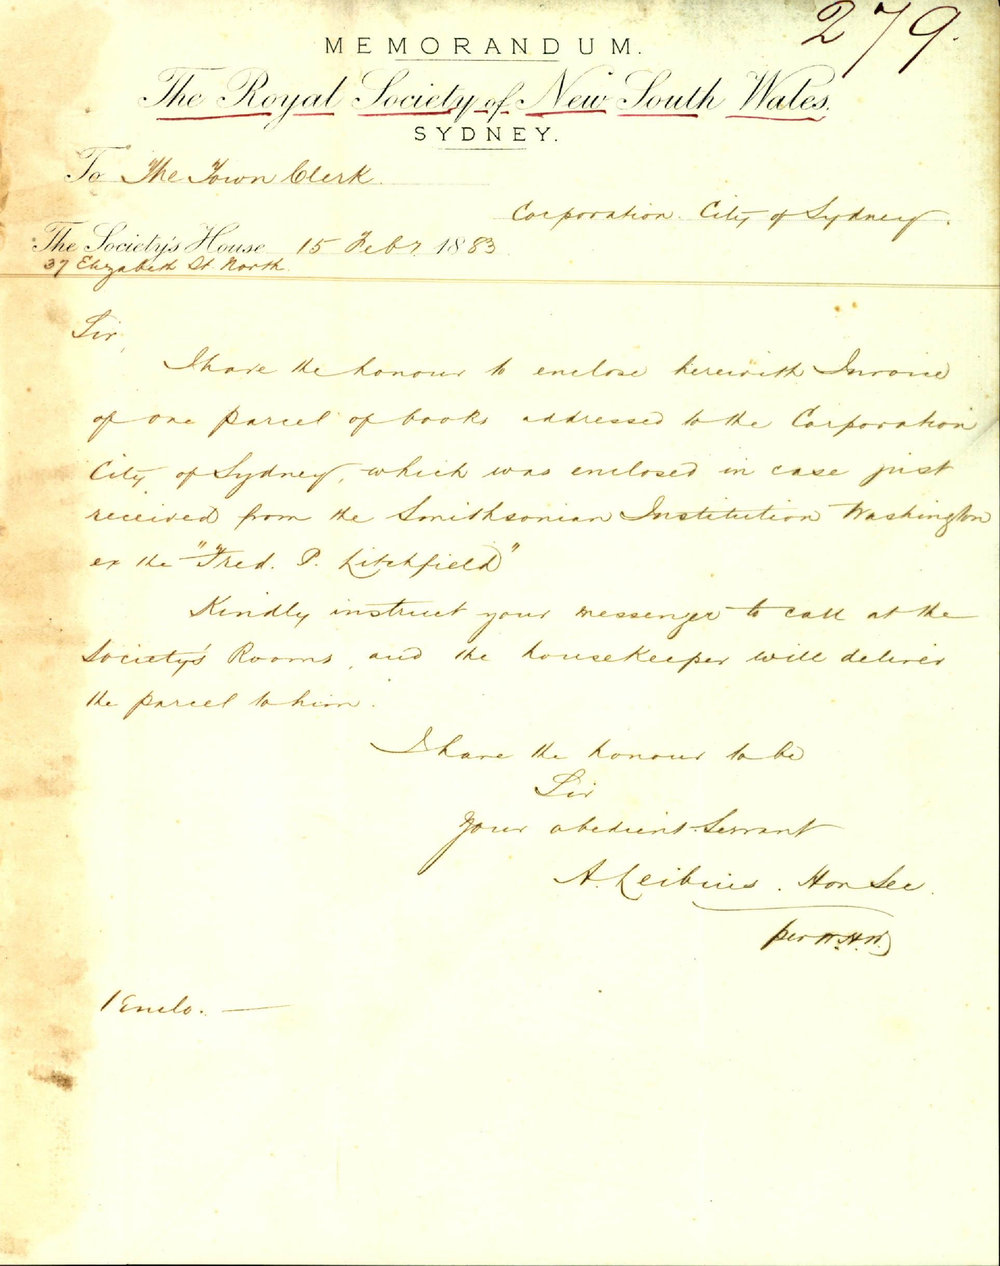 279.
MEMORANDUM.
The Royal Society of New South Wales.
SYDNEY.
To The Town Clerk
Corporation City of Sydney.
The Society's House 15 Feby 1883
37 Elizabeth St North.
Sir,
I have the honour to enclose herewith Invoice
of one parcel of books addressed to the Corporation
City of Sydney, which was enclosed in case just
received from the Smithsonian Institution Washington
ex the "Fred. P. Litchfield"
Kindly instruct your messenger to call at the
Society's Rooms, and the housekeeper will deliver
the parcel to him.
I have the honour to be
Sir
Your obedient Servant
A. Leibius. Hon Sec.
per W.H.W.
1 Enclo. —